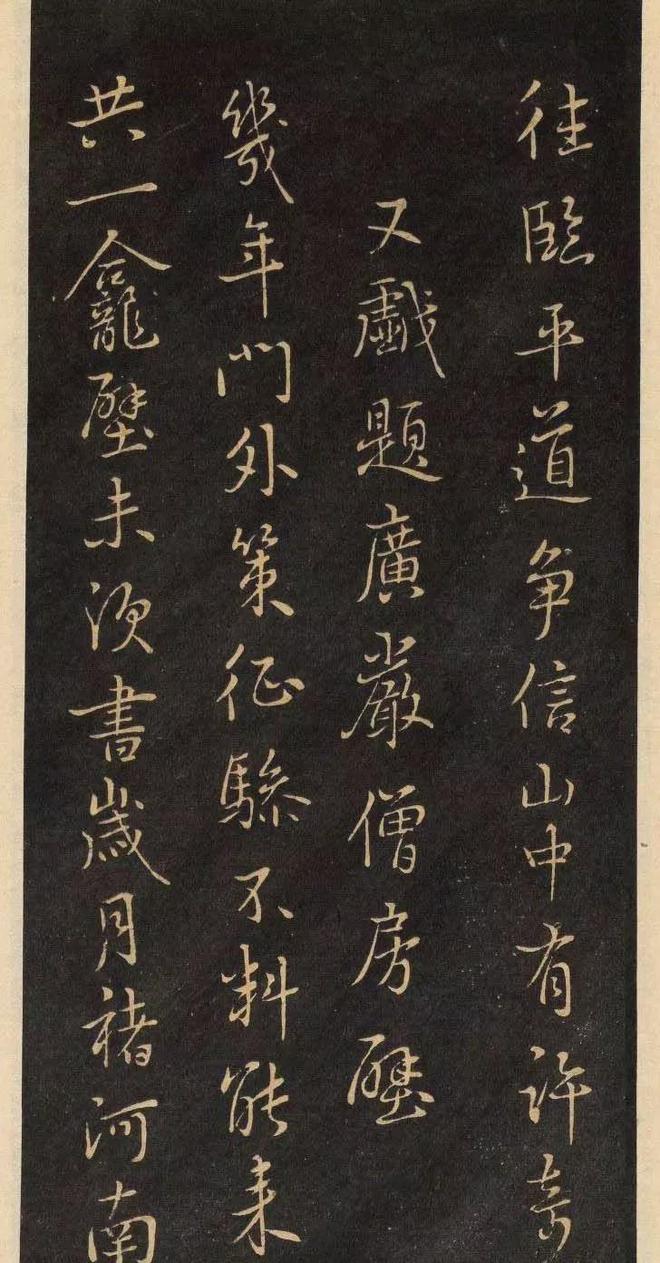 往臨平道争信山中有許奇
又戲題廣嚴僧房壁
幾年門外策征驂不料能来
共一龕壁未須書歲月褚河南